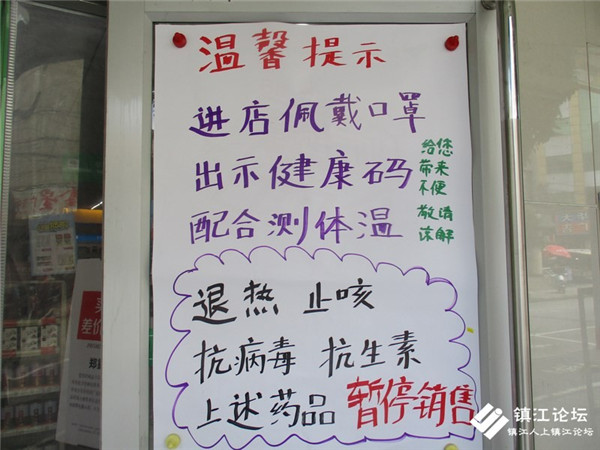 温馨提示
进店佩戴口罩
出示健康码
配合测体温
给您
带来
不便
敬请
谅解
退热 止咳
抗病毒 抗生素
上述药品 暂停销售
差价
镇江论坛
镇江人上镇江论坛